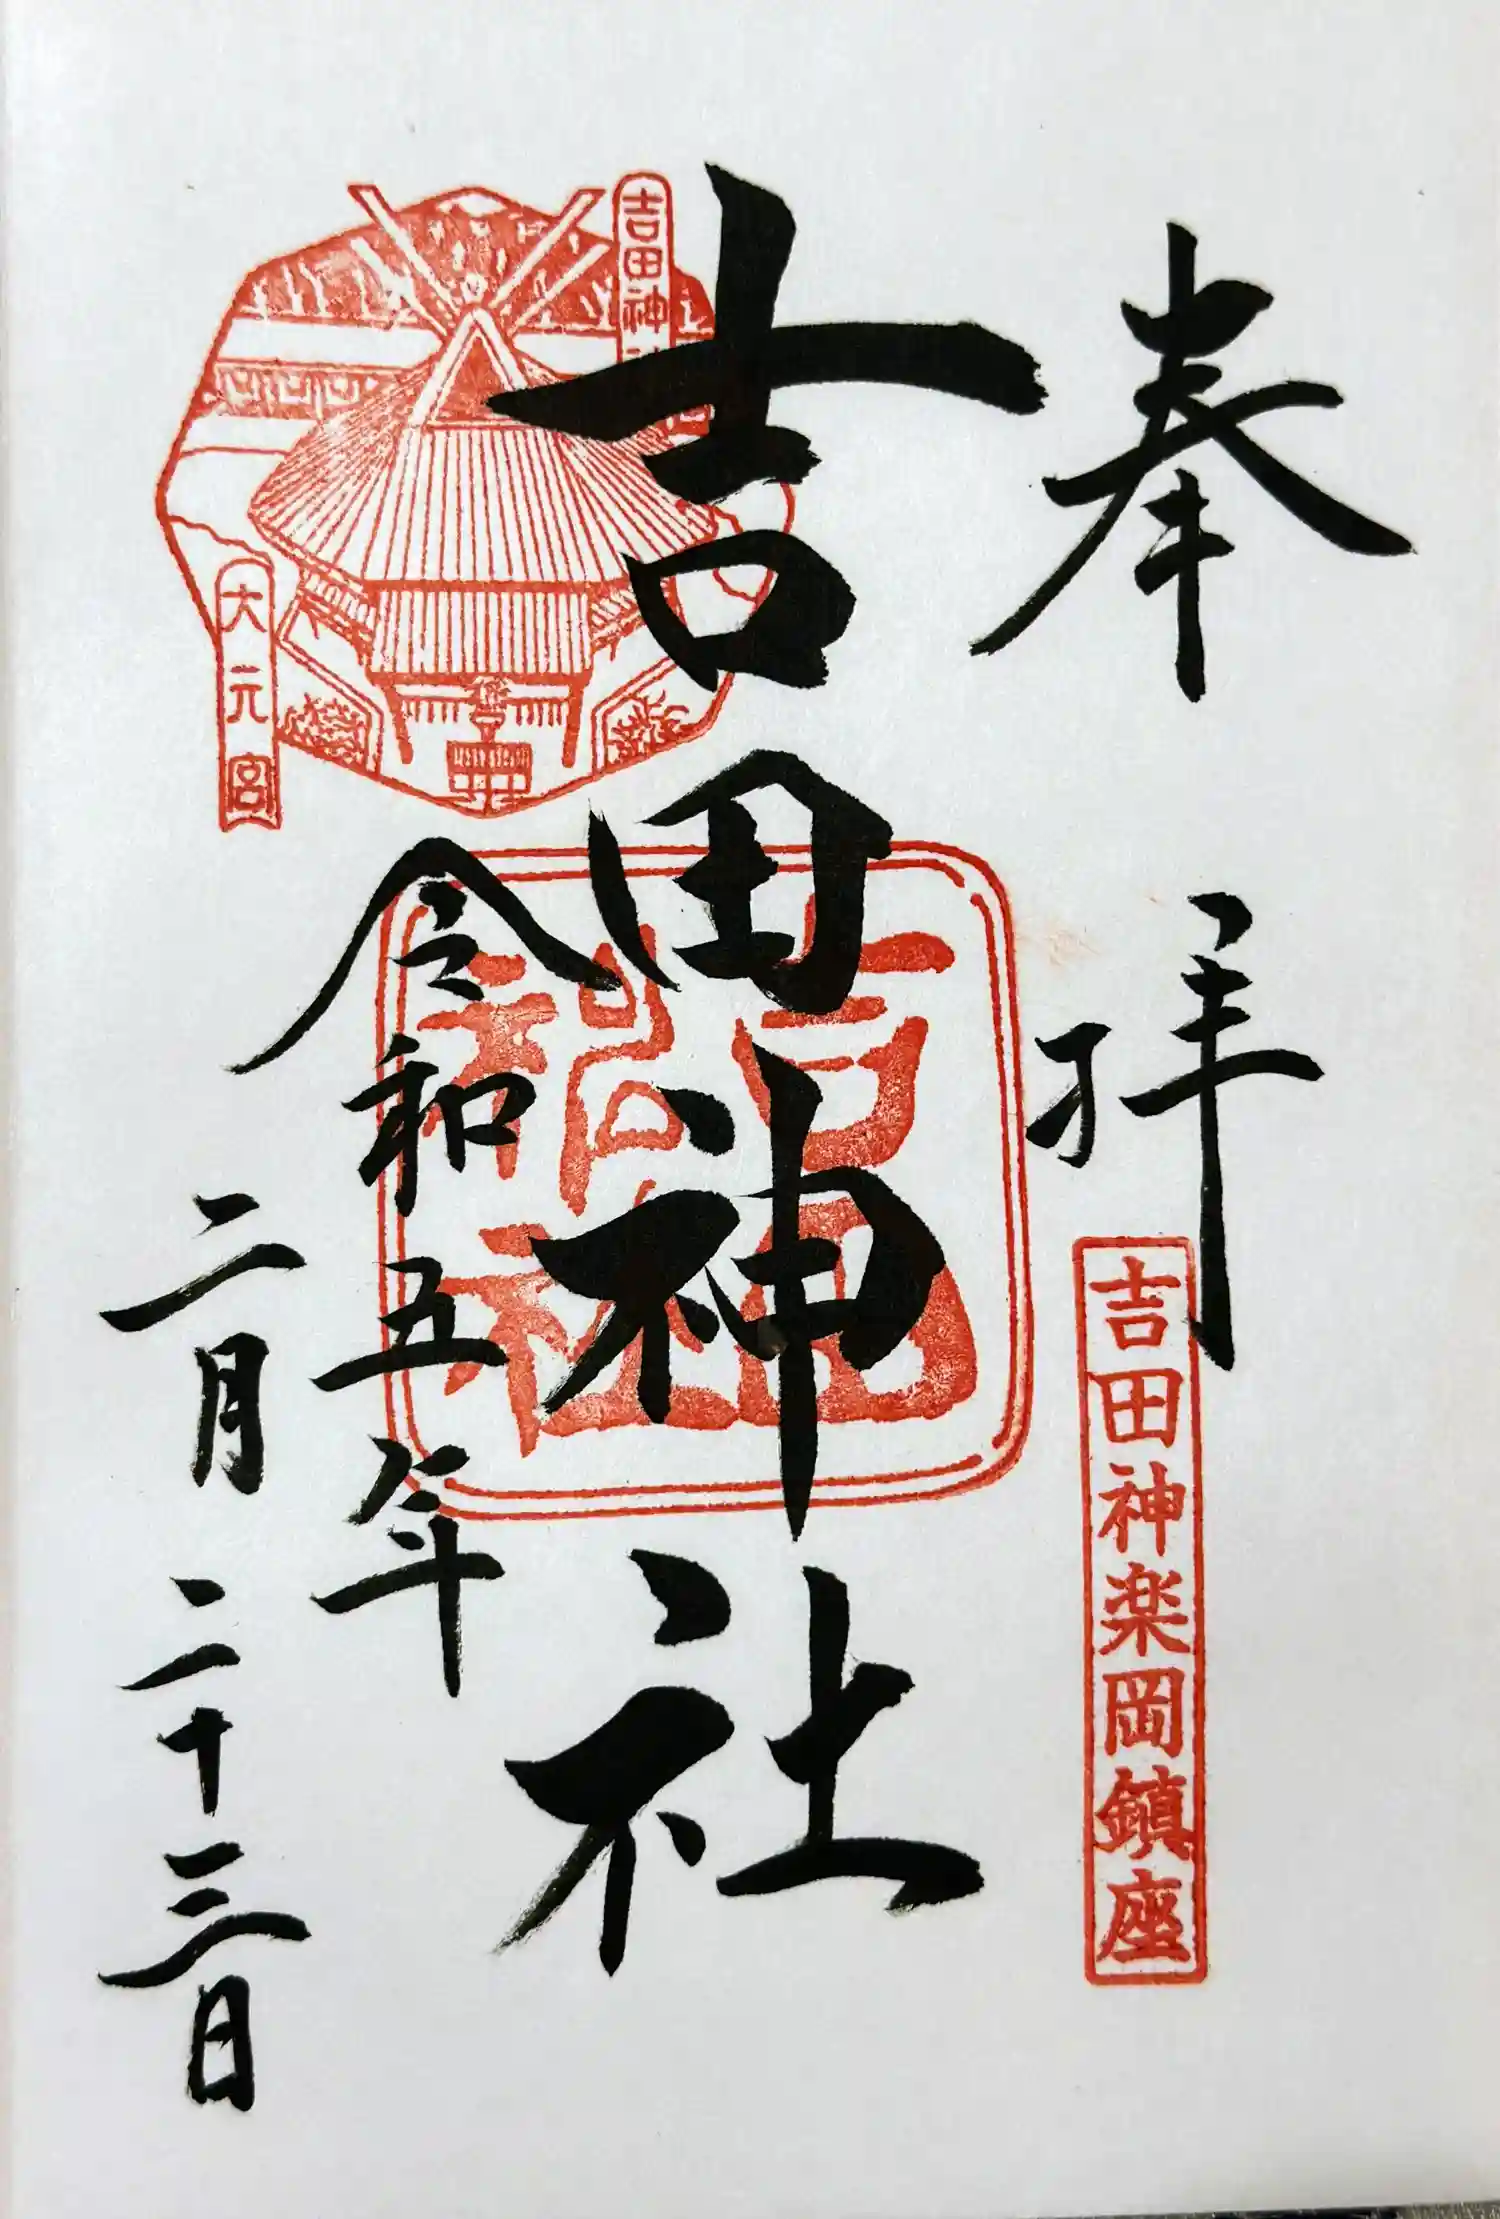 奉拝
吉田神楽岡鎮座
吉田神社
令和五年
二月二十三日
吉田神
大元宮